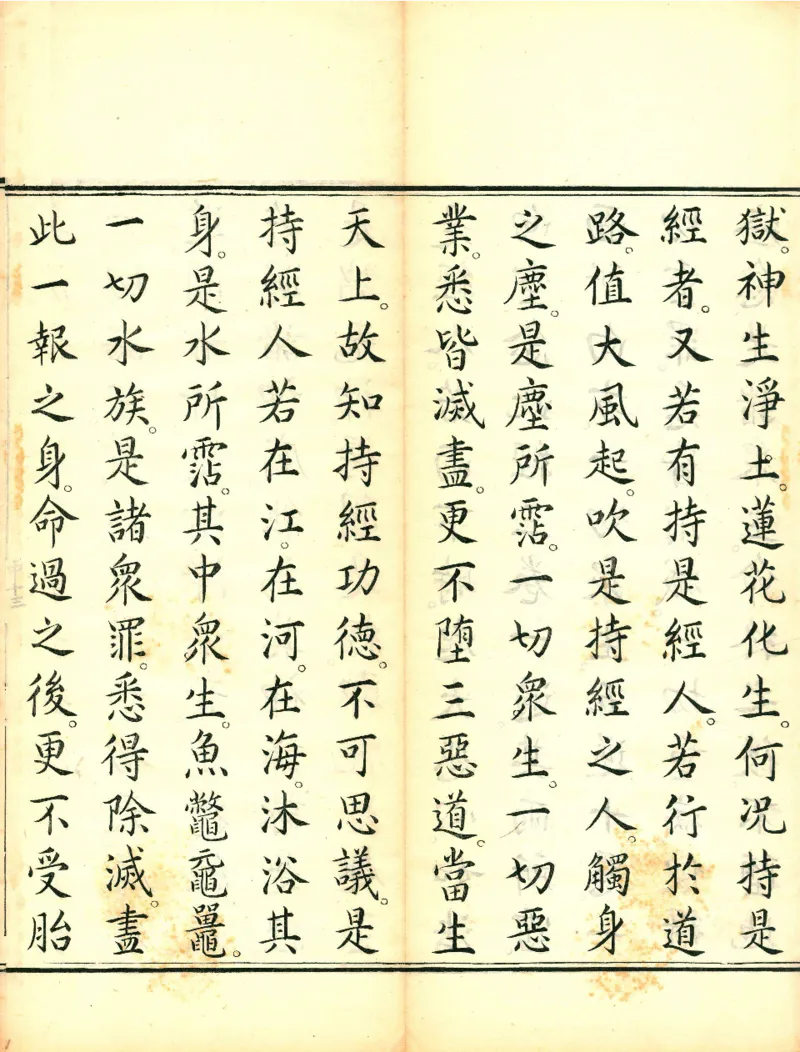 獄。神生淨土。蓮花化生。何况持是
經者。又若有持是經人。若行於道
路。值大風起。吹是持經之人。觸身
之塵。是塵所霑。一切衆生。一切惡
業。悉皆滅盡。更不墮三惡道。當生
天上。故知持經功德。不可思議。是
持經人若在江。在河。在海。沐浴其
身。是水所霑。其中衆生。魚鼈黿鼉。
一切水族。是諸衆罪。悉得除滅。盡
此一報之身。命過之後。更不受胎